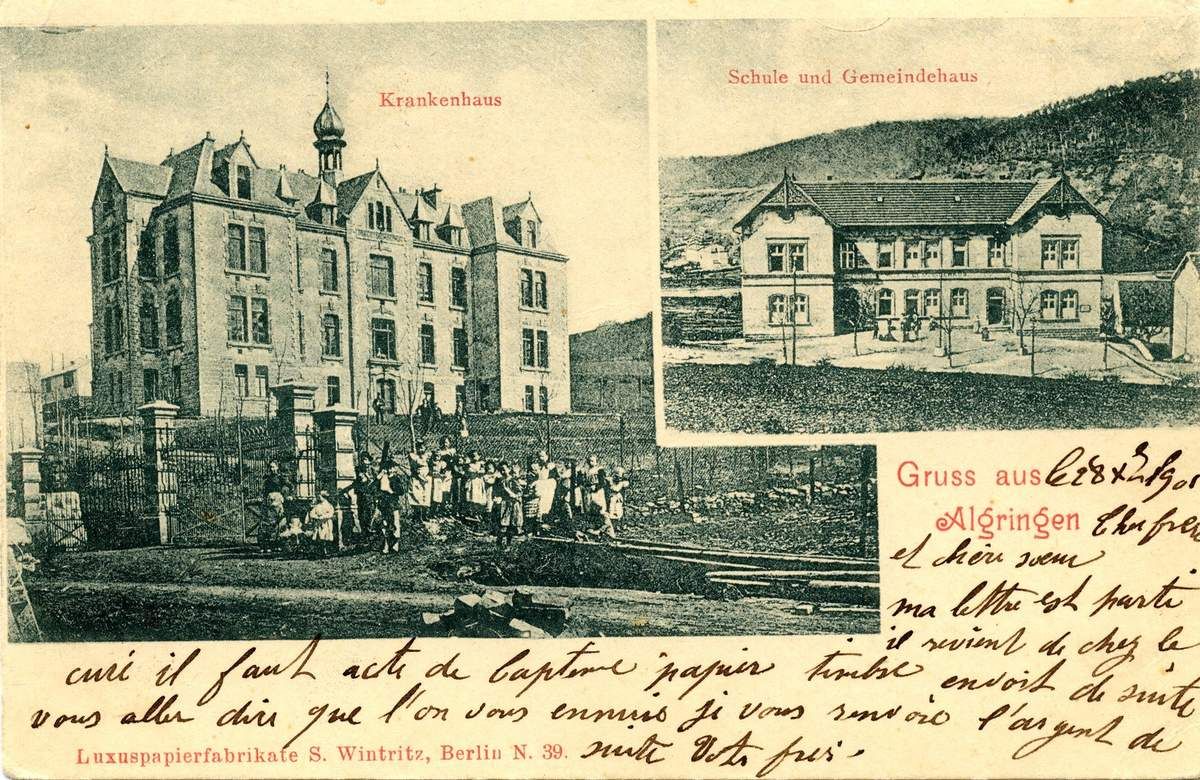 Krankenhaus
Schule und Gemeindehaus
Gruss aus
Algringen
et chère sœur
ma lettre est partie
il revient de chez le
curé il faut acte de bapteme papier timbre envoit de suite
vous aller dire que l'on vous ennuis je vous renvoie l'argent de
suite Votre frère
Luxuspapierfabrikate S. Wintritz, Berlin N. 39.